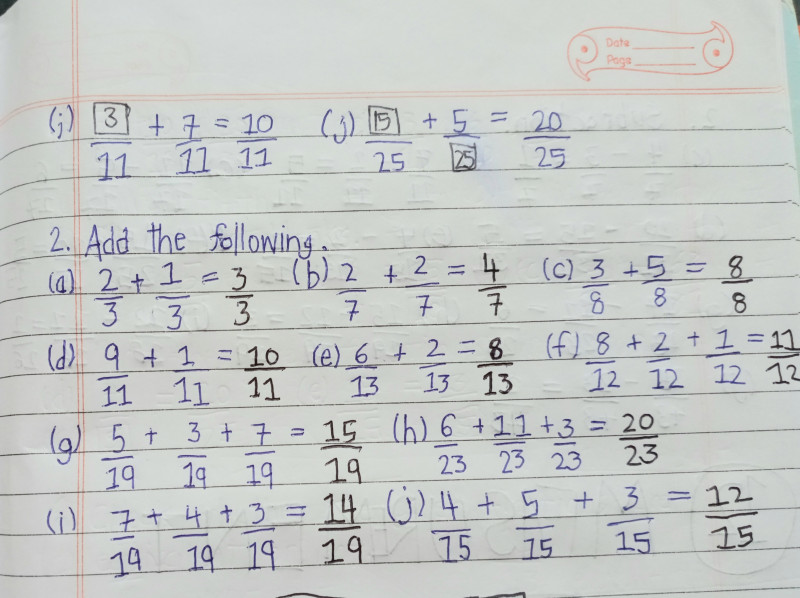 Date
Page
(i) 3/11 + 7/11 = 10/11 (j) 15/25 + 5/25 = 20/25
2. Add the following.
(a) 2/3 + 1/3 = 3/3 (b) 2/7 + 2/7 = 4/7 (c) 3/8 + 5/8 = 8/8
(d) 9/11 + 1/11 = 10/11 (e) 6/13 + 2/13 = 8/13 (f) 8/12 + 2/12 + 1/12 = 11/12
(g) 5/19 + 3/19 + 7/19 = 15/19 (h) 6/23 + 11/23 + 3/23 = 20/23
(i) 7/19 + 4/19 + 3/19 = 14/19 (j) 4/15 + 5/15 + 3/15 = 12/15